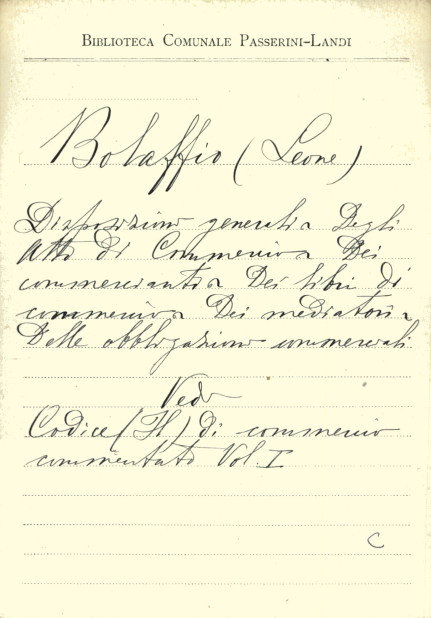 BIBLIOTECA COMUNALE PASSERINI-LANDI
Bolaffio (Leone)
Disposizioni generali - Degli
Atti di Commercio - Dei
commercianti - Dei libri di
commercio - Dei mediatori -
Delle obbligazioni commerciali
Vedi
Codice (Il) di commercio
commentato Vol. I
C